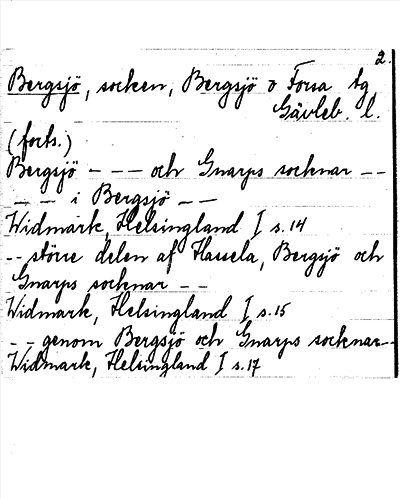 2.
Bergsjö, socken, Bergsjö o Forsa tg
Gävleb. l.
(forts.)
Bergsjö - - - och Gnarps socknar - -
- - - i Bergsjö - -
Widmark, Helsingland I s. 14
- - större delen af Hassela, Bergsjö och
Gnarps socknar - -
Widmark, Helsingland I s. 15
- - genom Bergsjö och Gnarps socknar - -
Widmark, Helsingland I s. 17